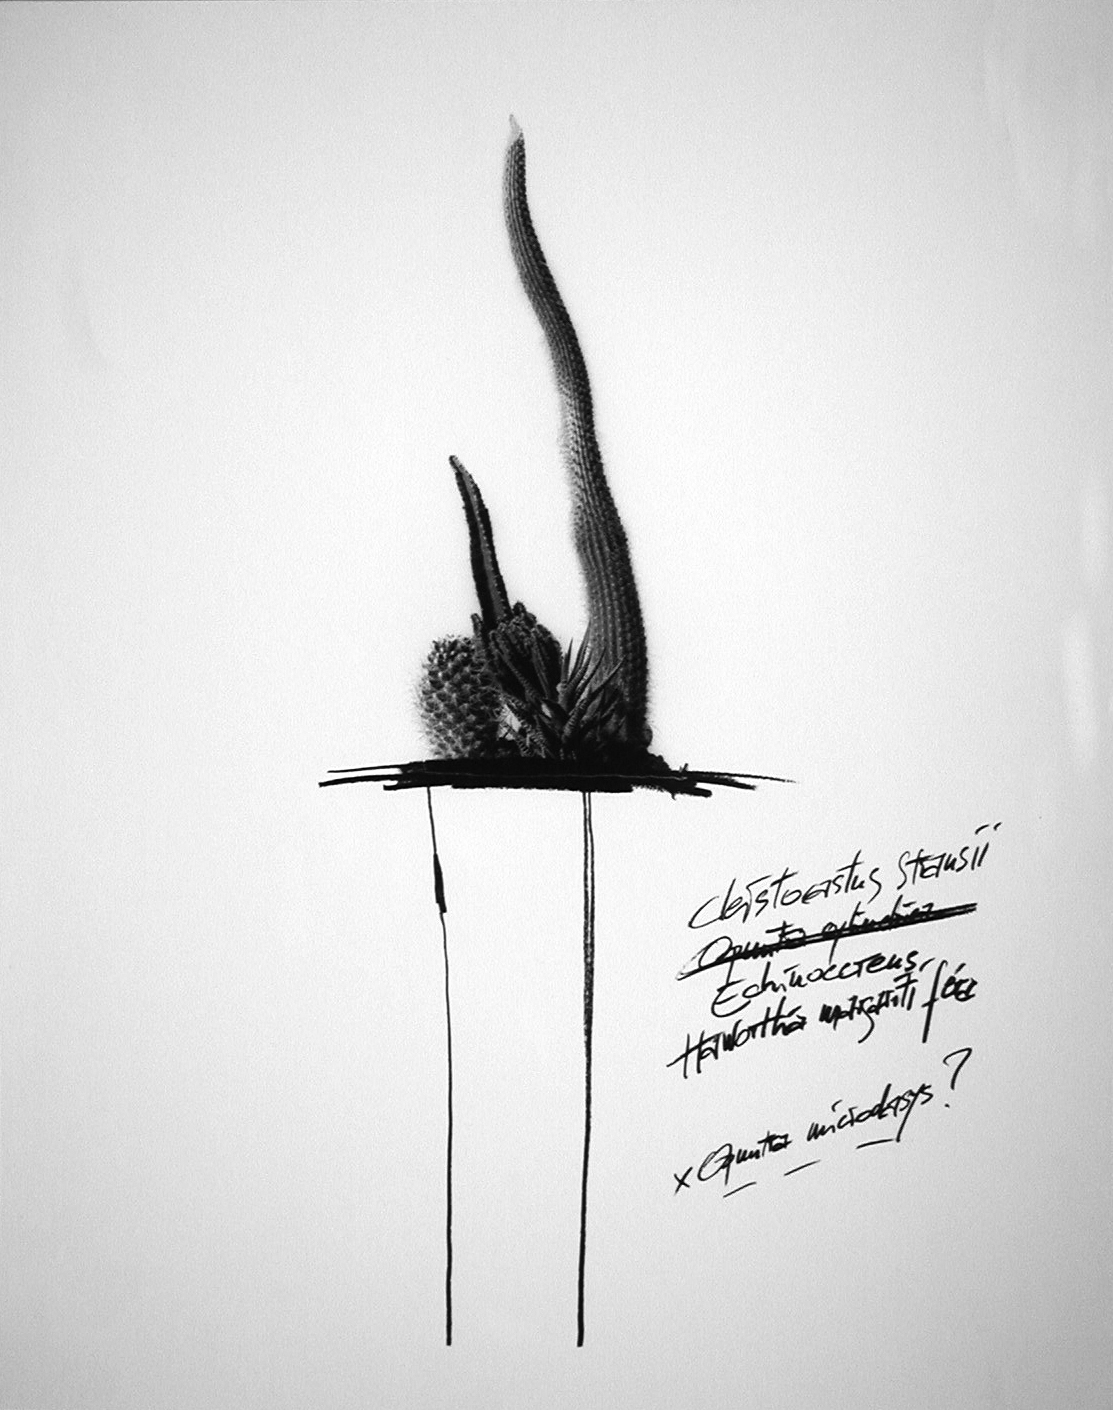 Cleistocactus strausii
Opuntia cylindrica
Echinocereus
Haworthia margaritifera
x Opuntia microdasys?